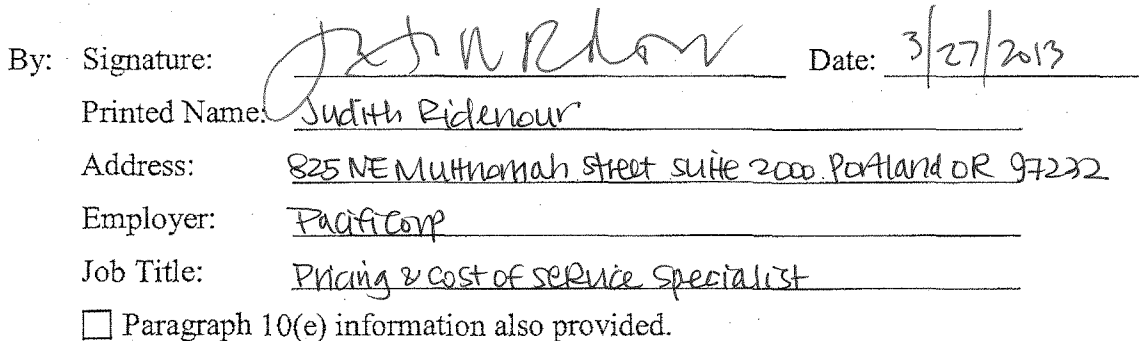 By: Signature: Date: 3/27/2013
Printed Name: Judith Ridenour
Address: 825 NE Multnomah Street suite 2000 Portland OR 97232
Employer: PacifiCorp
Job Title: Pricing & cost of service specialist
Paragraph 10(e) information also provided.